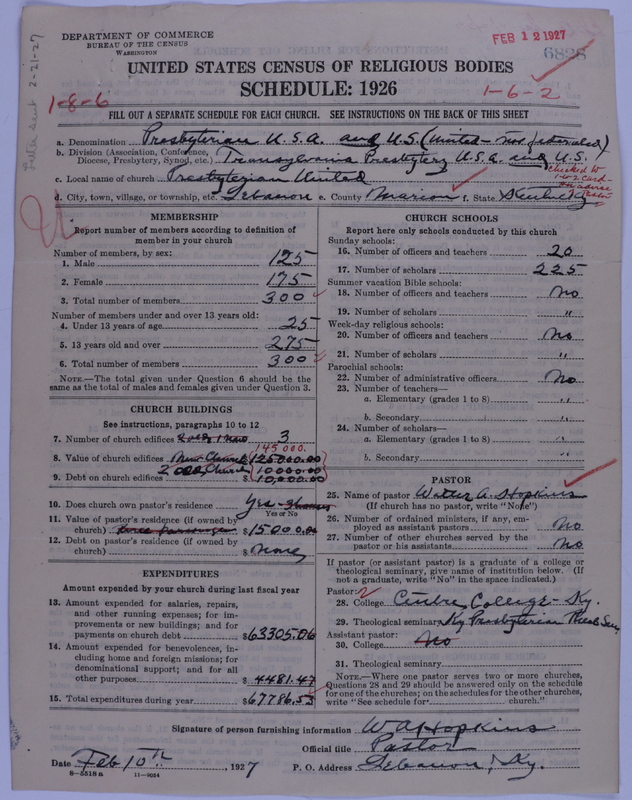 DEPARTMENT OF COMMERCE
BUREAU OF THE CENSUS
WASHINGTON
FEB 12 1927
6828
UNITED STATES CENSUS OF RELIGIOUS BODIES
SCHEDULE: 1926
1-8-6
1-6-2
Letter Sent 2-21-27
FILL OUT A SEPARATE SCHEDULE FOR EACH CHURCH. SEE INSTRUCTIONS ON THE BACK OF THIS SHEET
a. Denomination Presbyterian U.S.A. and U.S. (United - not federated)
b. Division (Association, Conference, Diocese, Presbytery, Synod, etc.) Transylvania Presbytery U.S.A. and U.S.
c. Local name of church Presbyterian United
d. City, town, village, or township, etc. Lebanon e. County Marion f. State Kentucky
MEMBERSHIP
Report number of members according to definition of member in your church
Number of members, by sex:
1. Male 125
2. Female 175
3. Total number of members 300
Number of members under and over 13 years old:
4. Under 13 years of age 25
5. 13 years old and over 275
6. Total number of members 300
NOTE.—The total given under Question 6 should be the same as the total of males and females given under Question 3.
CHURCH BUILDINGS
See instructions, paragraphs 10 to 12
7. Number of church edifices 2 old 1 new 3
145000.
8. Value of church edifices New Church $125000.00
2 old Church 10000.00
9. Debt on church edifices $10,000.00
10. Does church own pastor's residence Yes
Yes or No
11. Value of pastor's residence (if owned by church) $15000.00
12. Debt on pastor's residence (if owned by church) $ None
EXPENDITURES
Amount expended by your church during last fiscal year
13. Amount expended for salaries, repairs, and other running expenses; for improvements or new buildings; and for payments on church debt $63305.06
14. Amount expended for benevolences, including home and foreign missions; for denominational support; and for all other purposes $4481.47
15. Total expenditures during year $67786.53
CHURCH SCHOOLS
Report here only schools conducted by this church
Sunday schools:
16. Number of officers and teachers 20
17. Number of scholars 225
Summer vacation Bible schools:
18. Number of officers and teachers No
19. Number of scholars "
Week-day religious schools:
20. Number of officers and teachers No
21. Number of scholars "
Parochial schools:
22. Number of administrative officers No
23. Number of teachers—
a. Elementary (grades 1 to 8) "
b. Secondary "
24. Number of scholars—
a. Elementary (grades 1 to 8) "
b. Secondary "
PASTOR
25. Name of pastor Walter A. Hopkins
(If church has no pastor, write "None")
26. Number of ordained ministers, if any, employed as assistant pastors No
27. Number of other churches served by the pastor or his assistants No
If pastor (or assistant pastor) is a graduate of a college or theological seminary, give name of institution below. (If not a graduate, write "No" in the space indicated.)
Pastor:
28. College Centre College - Ky.
29. Theological seminary Ky Presbyterian Theol. Sem
Assistant pastor:
30. College No
31. Theological seminary
NOTE.—Where one pastor serves two or more churches, Questions 28 and 29 should be answered only on the schedule for one of the churches; on the schedules for the other churches, write "See schedule for church."
Signature of person furnishing information W A Hopkins
Official title Pastor
Date Feb 10th, 1927 P. O. Address Lebanon, Ky.
8-5518 a 11-9054